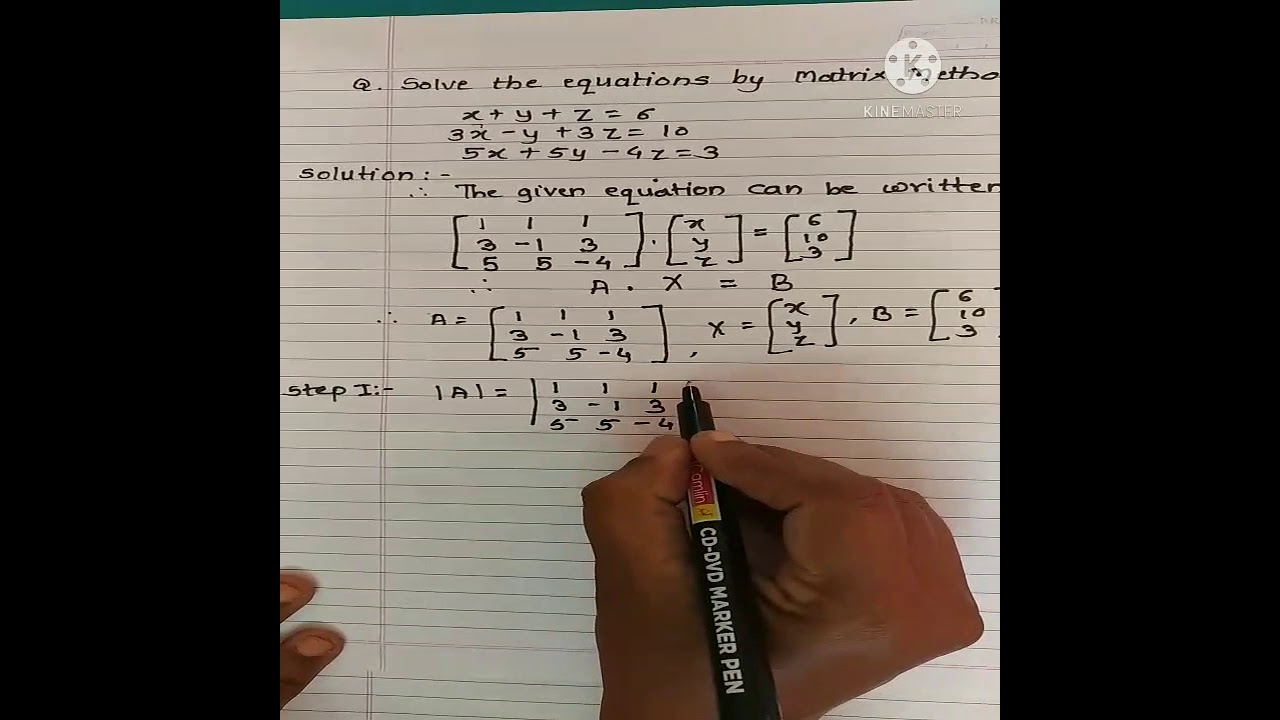 Q. Solve the equations by Matrix Metho
KINEMASTER
x + y + z = 6
3x - y + 3z = 10
5x + 5y - 4z = 3
Solution :-
∴ The given equation can be written
[1 1 1; 3 -1 3; 5 5 -4] . [x; y; z] = [6; 10; 3]
∴ A . X = B
∴ A = [1 1 1; 3 -1 3; 5 5 -4], X = [x; y; z], B = [6; 10; 3
Step I:- |A| = |1 1 1; 3 -1 3; 5 5 -4
Camlin
CD-DVD MARKER PEN